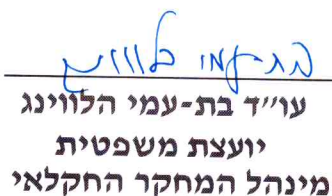 בת-עמי הלווינג
עו״ד בת-עמי הלווינג
יועצת משפטית
מינהל המחקר החקלאי